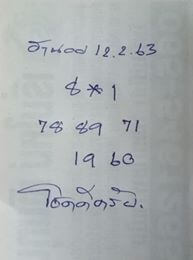 ฮานอย 12.2.63
8*1
78 89 71
19 60
โชคดีครับ.